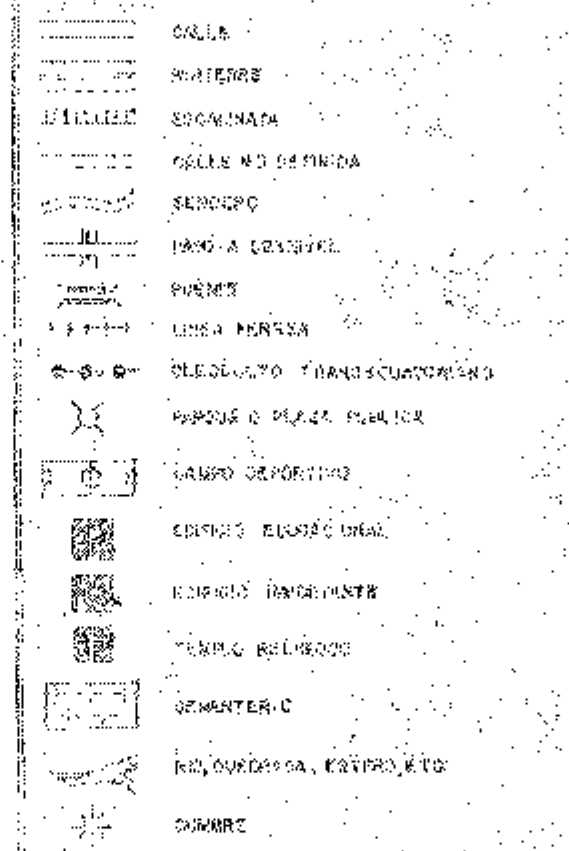 CALLE
PARTERRE
ESCALINATA
CALLE NO DEFINIDA
SENDERO
PASO A DESNIVEL
PUENTE
LINEA FERREA
OLEODUCTO TRANSECUATORIANO
PARQUE O PLAZA PUBLICA
CAMPO DEPORTIVO
EDIFICIO EDUCACIONAL
EDIFICIO IMPORTANTE
TEMPLO RELIGIOSO
CEMENTERIO
RIO, QUEBRADA, ESTERO, ETC
CUMBRE